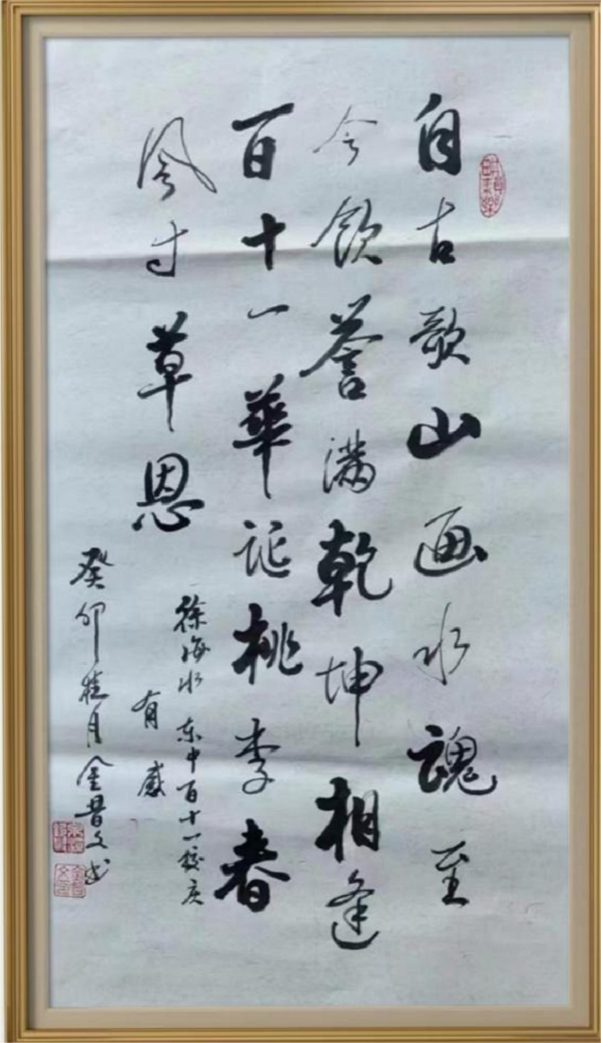 自古歌山画水魂至
今饮誉满乾坤相逢
百十一华诞桃李春
风寸草恩
徐海水东中百十一校庆
有感
癸卯桂月金晋文书